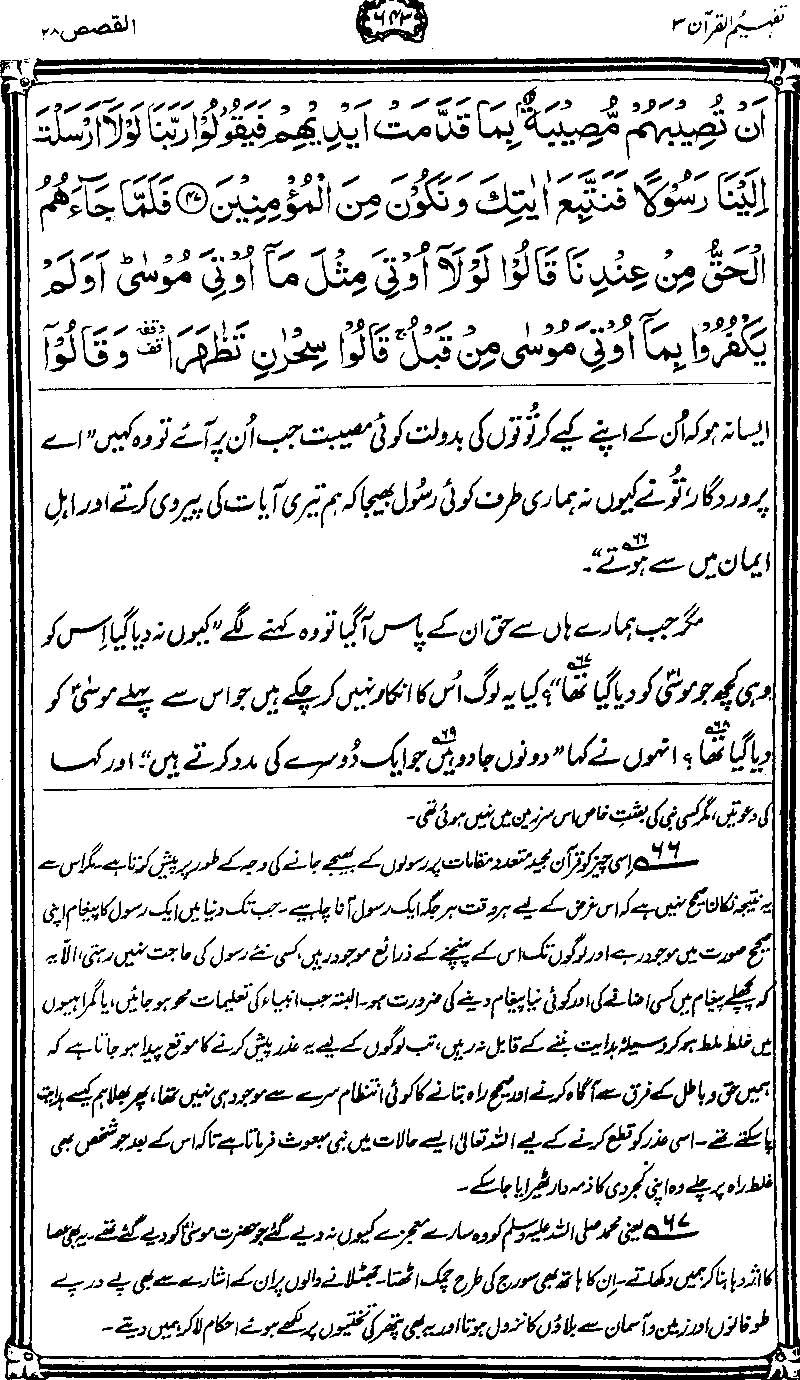 تفہیم القرآن ۳
۶۴۳
القصص ۲۸
اَنْ تُصِيْبَهُمْ مُّصِيْبَةٌۢ بِمَا قَدَّمَتْ اَيْدِيْهِمْ فَيَقُوْلُوْا رَبَّنَا لَوْلَاۤ اَرْسَلْتَ
اِلَيْنَا رَسُوْلًا فَنَتَّبِعَ اٰيٰتِكَ وَنَكُوْنَ مِنَ الْمُؤْمِنِيْنَ ۴۷ فَلَمَّا جَآءَهُمُ
الْحَقُّ مِنْ عِنْدِنَا قَالُوْا لَوْلَاۤ اُوْتِيَ مِثْلَ مَاۤ اُوْتِيَ مُوْسٰى ؕ اَوَلَمْ
يَكْفُرُوْا بِمَاۤ اُوْتِيَ مُوْسٰى مِنْ قَبْلُ ۚ قَالُوْا سِحْرٰنِ تَظٰهَرَا وقفہ وَقَالُوْۤا
ایسا نہ ہو کہ اُن کے اپنے کیے کرتُوتوں کی بدولت کوئی مصیبت جب اُن پر آئے تو وہ کہیں ”اے
پروردگار، تُو نے کیوں نہ ہماری طرف کوئی رسُول بھیجا کہ ہم تیری آیات کی پیروی کرتے اور اہلِ
ایمان میں سے ہوتے“ ۶۶۔
مگر جب ہمارے ہاں سے حق ان کے پاس آگیا تو وہ کہنے لگے ”کیوں نہ دیا گیا اِس کو
وہی کچھ جو موسیٰؑ کو دیا گیا تھا“ ۶۷؟ کیا یہ لوگ اُس کا انکار نہیں کر چکے ہیں جو اس سے پہلے موسیٰؑ کو
دیا گیا تھا ۶۸؟ انہوں نے کہا ”دونوں جادو ہیں ۶۹ جو ایک دُوسرے کی مدد کرتے ہیں“۔ اور کہا
کی دعوتیں، مگر کسی نبی کی بعثتِ خاص اس سرزمین میں نہیں ہوئی تھی۔
۶۶ اسی چیز کو قرآن مجید متعدد مقامات پر رسولوں کے بھیجے جانے کی وجہ کے طور پر پیش کرتا ہے۔ مگر اس سے
یہ نتیجہ نکالنا صحیح نہیں ہے کہ اس غرض کے لیے ہر وقت ہر جگہ ایک رسول آنا چاہیے۔ جب تک دنیا میں ایک رسول کا پیغام اپنی
صحیح صورت میں موجود رہے اور لوگوں تک اس کے پہنچنے کے ذرائع موجود رہیں، کسی نئے رسول کی حاجت نہیں رہتی، الّا یہ
کہ پچھلے پیغام میں کسی اضافے کی اور کوئی نیا پیغام دینے کی ضرورت ہو۔ البتہ جب انبیاء کی تعلیمات محو ہو جائیں، یا گمراہیوں
میں خلط ملط ہو کر وسیلۂ ہدایت بننے کے قابل نہ رہیں، تب لوگوں کے لیے یہ عذر پیش کرنے کا موقع پیدا ہو جاتا ہے کہ
ہمیں حق و باطل کے فرق سے آگاہ کرنے اور صحیح راہ بتانے کا کوئی انتظام سرے سے موجود ہی نہیں تھا، پھر بھلا ہم کیسے ہدایت
پا سکتے تھے۔ اسی عذر کو قطع کرنے کے لیے اللہ تعالیٰ ایسے حالات میں نبی مبعوث فرماتا ہے تاکہ اس کے بعد جو شخص بھی
غلط راہ پر چلے وہ اپنی کجروی کا ذمہ دار ٹھیرایا جا سکے۔
۶۷ یعنی محمد صلی اللہ علیہ وسلم کو وہ سارے معجزے کیوں نہ دیے گئے جو حضرت موسیٰؑ کو دیے گئے تھے۔ یہ بھی عصا
کا اژدہا بنا کر ہمیں دکھاتے۔ اِن کا ہاتھ بھی سورج کی طرح چمک اٹھتا۔ جھٹلانے والوں پر ان کے اشارے سے بھی پے در پے
طوفانوں اور زمین و آسمان سے بلاؤں کا نزول ہوتا اور یہ بھی پتھر کی تختیوں پر لکھے ہوئے احکام لا کر ہمیں دیتے۔